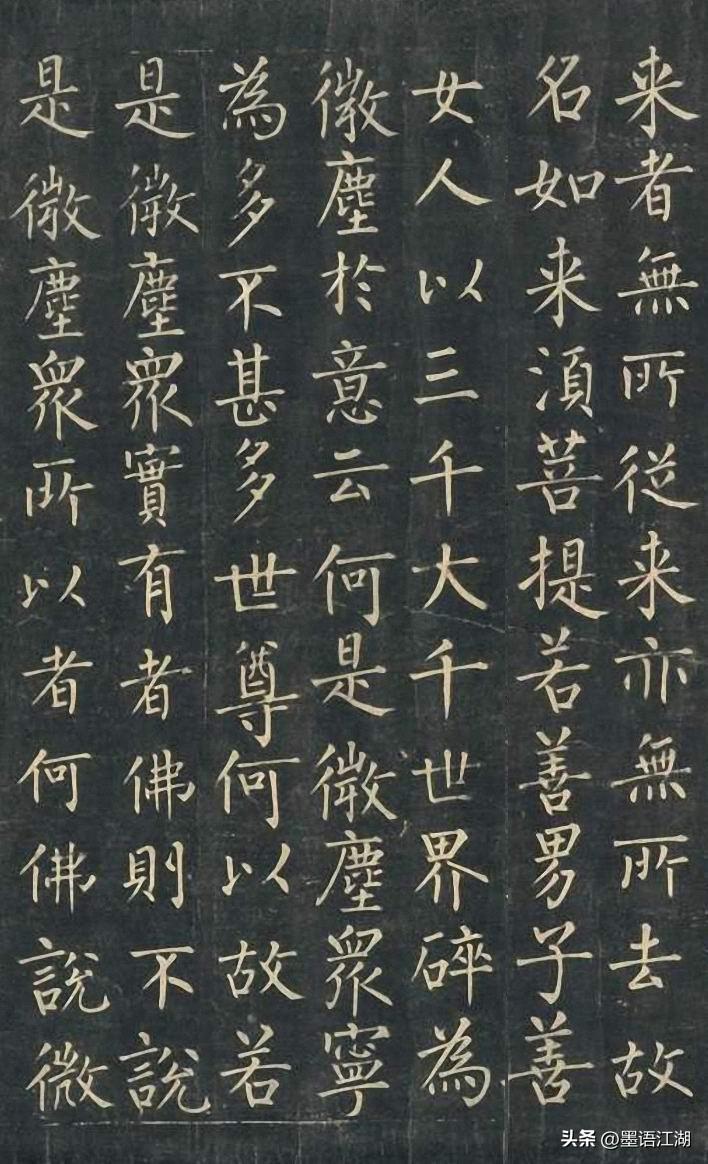 来者無所從来亦無所去故
名如来湏菩提若善男子善
女人以三千大千世界碎為
微塵於意云何是微塵衆寧
為多不甚多世尊何以故若
是微塵衆實有者佛則不說
是微塵衆所以者何佛說微
头条 @墨语江湖